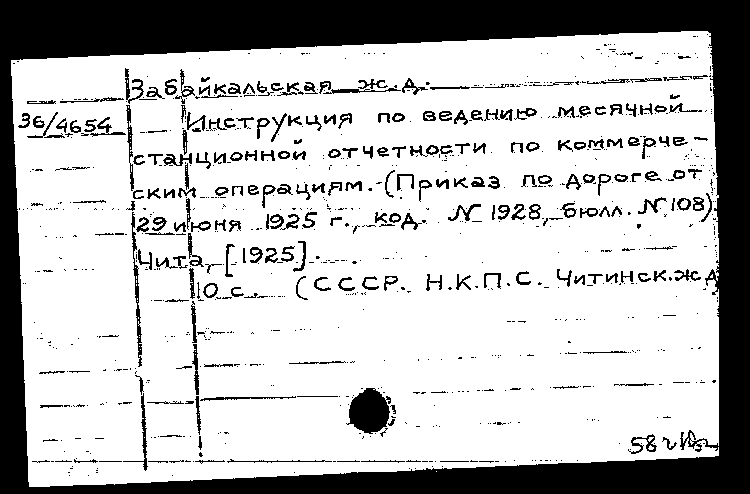 Забайкальская ж.д.
36/4654 Инструкция по ведению месячной
станционной отчетности по коммерче-
ским операциям. - (Приказ по дороге от
29 июня 1925 г., код. № 1928, бюлл. № 108).
Чита, [1925].
10 с. (СССР. Н.К.П.С. Читинск.жд
58